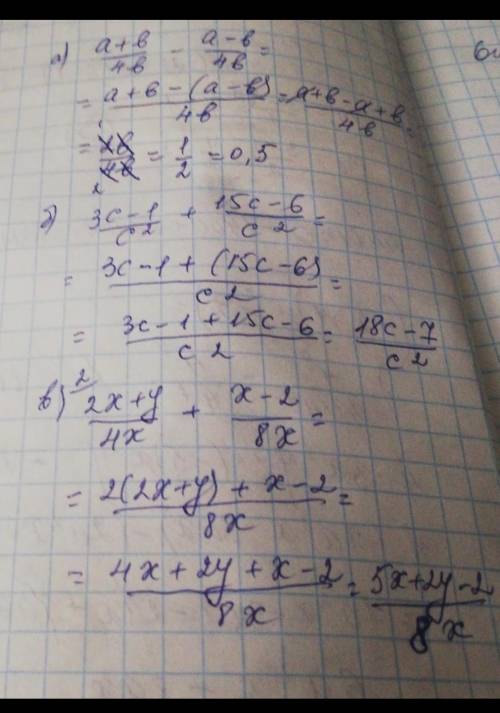 а) (a+b)/4b − (a−b)/4b =
= (a+b−(a−b))/4b = (a+b−a+b)/4b =
= 2b/4b = 1/2 = 0,5
б) (3c−1)/c² + (15c−6)/c² =
= (3c−1+(15c−6))/c² =
= (3c−1+15c−6)/c² = (18c−7)/c²
в) ²⁄(2x+y)/4x + (x−2)/8x =
= (2(2x+y)+x−2)/8x =
= (4x+2y+x−2)/8x = (5x+2y−2)/8x